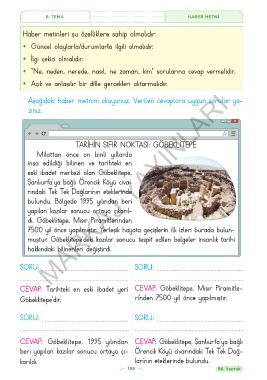 8. TEMA
HABER METNİ
Haber metinleri şu özelliklere sahip olmalıdır:
• Güncel olaylarla/durumlarla ilgili olmalıdır.
• İlgi çekici olmalıdır.
• "Ne, neden, nerede, nasıl, ne zaman, kim" sorularına cevap vermelidir.
• Açık ve anlaşılır bir dille gerçekleri aktarmalıdır.
Aşağıdaki haber metnini okuyunuz. Verilen cevaplara uygun sorular ya-
zınız.
TARİHİN SIFIR NOKTASI: GÖBEKLİTEPE
Milattan önce on binli yıllarda
inşa edildiği bilinen ve tarihteki en
eski ibadet merkezi olan Göbeklitepe,
Şanlıurfa'ya bağlı Örencik Köyü civa-
rındaki Tek Tek Dağlarının eteklerinde
bulundu. Bölgede 1995 yılından beri
yapılan kazılar sonucu ortaya çıkarıl-
dı. Göbeklitepe, Mısır Piramitlerinden
7500 yıl önce yapılmıştır. Yerleşik hayata geçişlerin ilk izleri burada bulun-
muştur. Göbeklitepe'deki kazılar sonucu tespit edilen belgeler insanlık tarihi
hakkındaki bilinenleri değiştirdi.
SORU:
SORU:
CEVAP: Tarihteki en eski ibadet yeri
Göbeklitepe'dir.
CEVAP: Göbeklitepe, Mısır Piramitle-
rinden 7500 yıl önce yapılmıştır.
SORU:
SORU:
CEVAP: Göbeklitepe, 1995 yılından
beri yapılan kazılar sonucu ortaya çı-
karıldı.
CEVAP: Göbeklitepe, Şanlıurfa'ya bağlı
Örencik Köyü civarındaki Tek Tek Dağ-
larının eteklerinde bulundu.
199